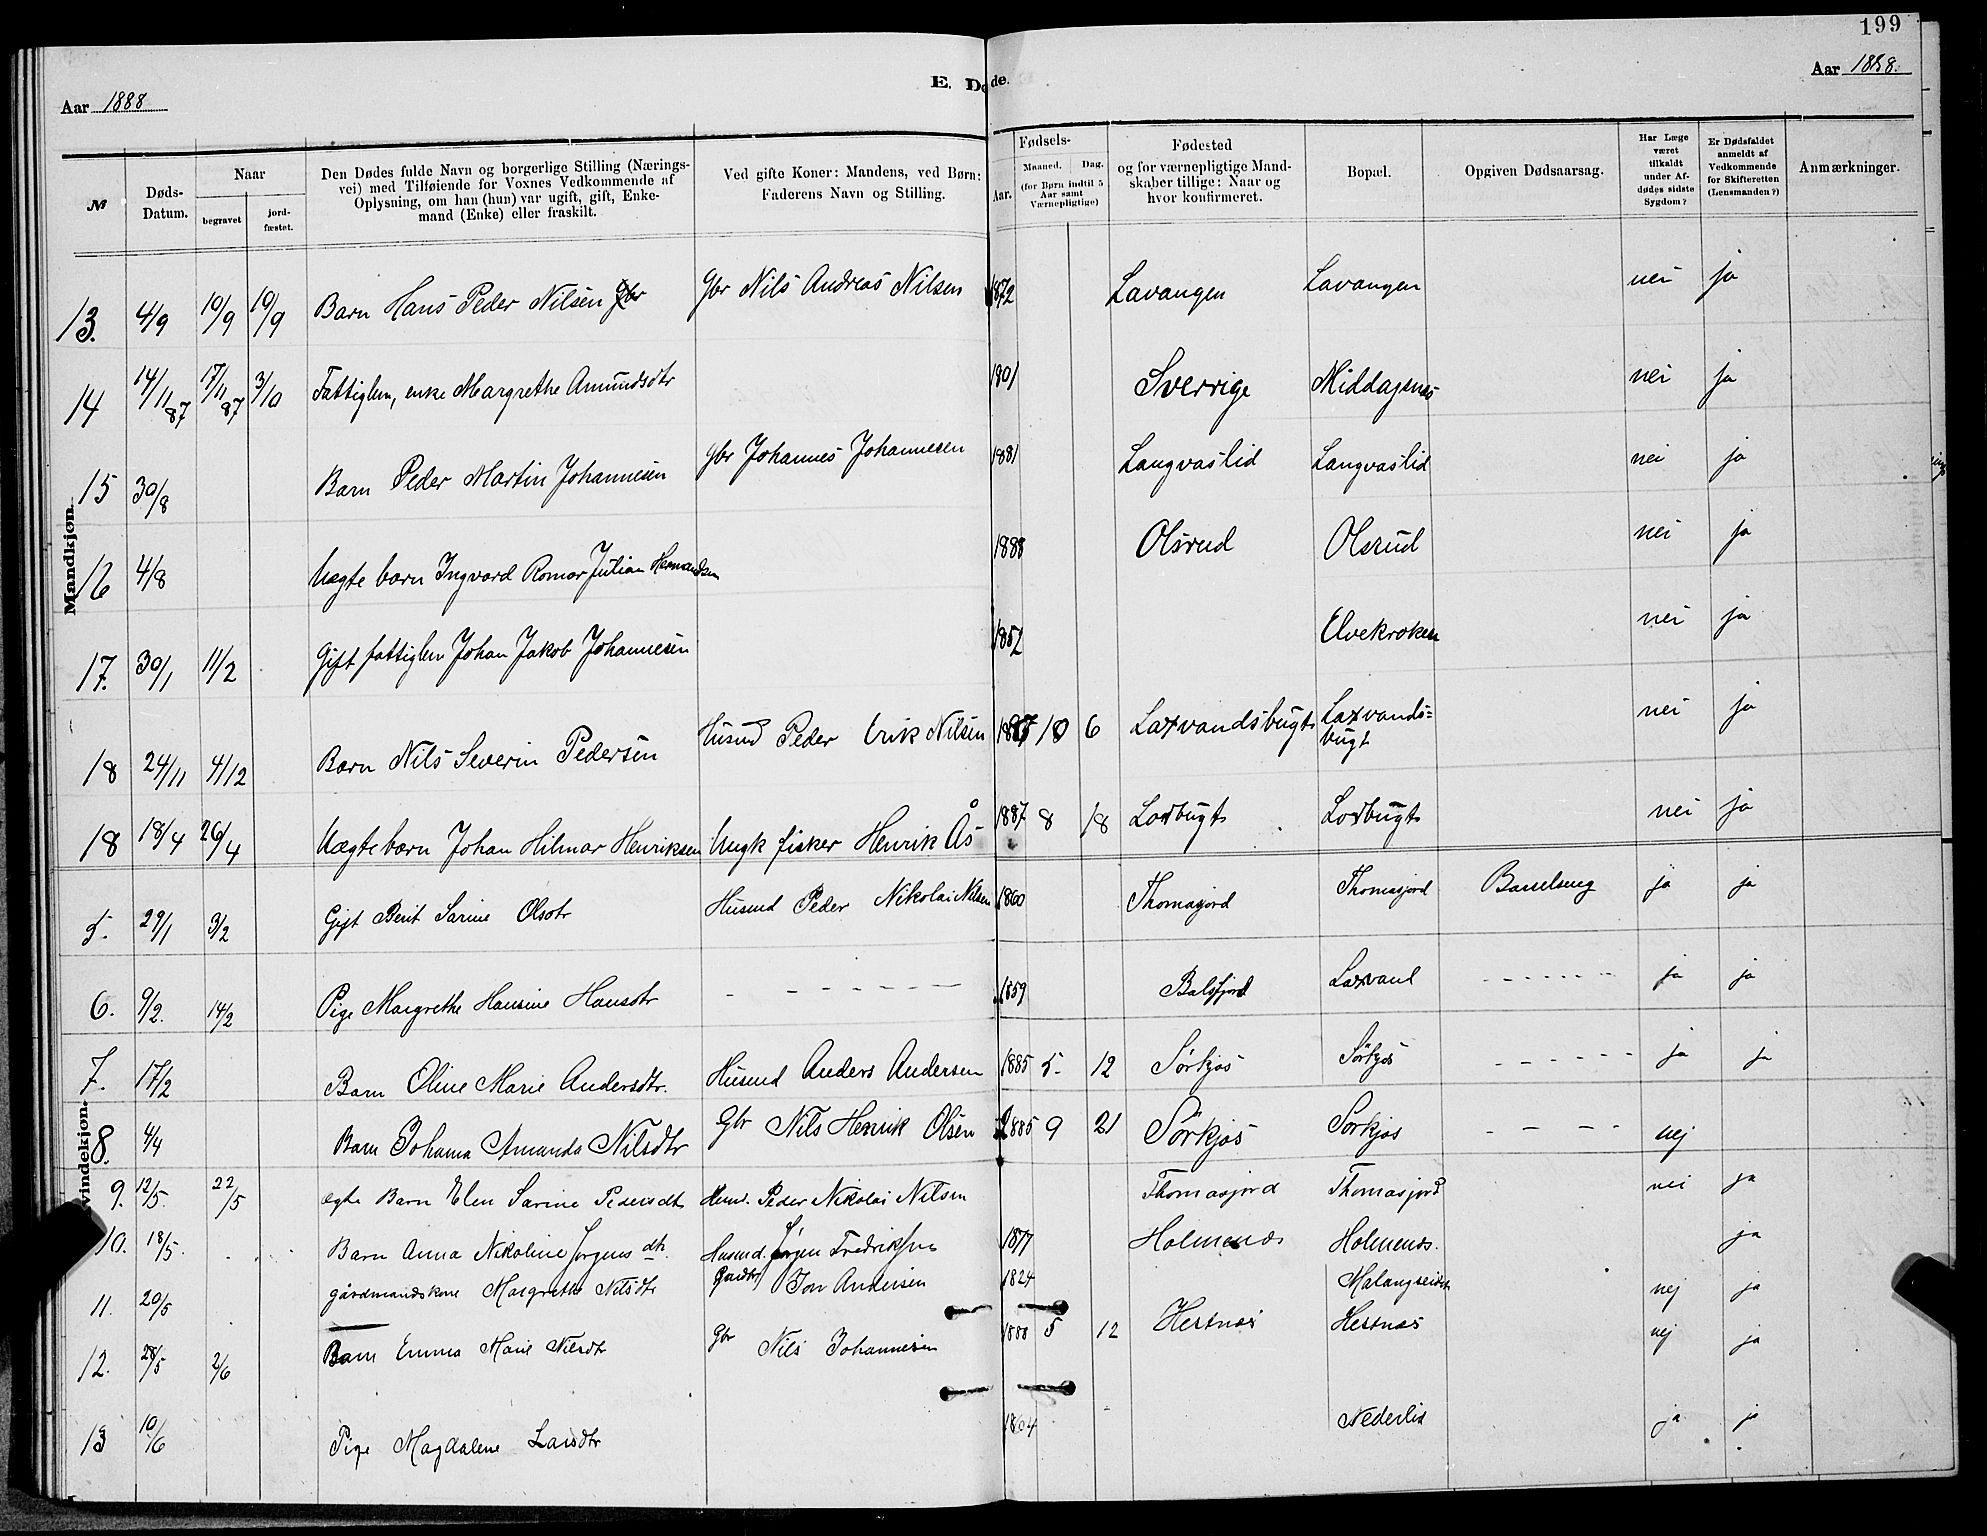 199
Aar 1888
E. De
de.
Aar 1888.
№
Døds-Datum.
Naar
begravet
jord-fæstet.
Den Dødes fulde Navn og borgerlige Stilling (Nærings-
vei) med Tilføiende for Voxnes Vedkommende af
Oplysning, om han (hun) var ugift, gift, Enke-
mand (Enke) eller fraskilt.
Ved gifte Koner: Mandens, ved Børn:
Faderens Navn og Stilling.
Fødsels-
Aar.
Maaned.
Dag.
(for Børn indtil 5
Aar samt
Værnepligtige)
Fødested
og for værnepligtige Mand-
skaber tillige: Naar og
hvor konfirmeret.
Bopæl.
Opgiven Dødsaarsag.
Har Læge
været
tilkaldt
under Af-
dødes sidste
Sygdom?
Er Dødsfaldet
anmeldt af
Vedkommende
for Skifteretten
(Lensmanden?)
Anmærkninger.
Mandkjøn.
13. 4/9 19/9 19/9 Barn Hans Peder Nilsen Gbr Nils Andreas Nilsen 1872 Lavangen Lavangen nei ja
14 14/11 87 17/11 87 3/10 Fattiglem, enke Margrethe Amundsdtr 1801 Sverrige Middagsnes nei ja
15 30/8 Barn Peder Martin Johannesen Gbr Johannes Johannesen 1881 Langvaslid Langvaslid nei ja
16 4/8 Uægte barn Ingvard Romar Julian Hermandsen 1888 Olsrud Olsrud nei ja
17. 30/1 11/2 Gift fattiglem Johan Jakob Johannesen Elvekroken nei ja
18 24/11 4/12 Barn Nils Severin Pedersen Husmd Peder Erik Nilsen 1887 10 6 Laxvandsbugt Laxvands=
bugt nei ja
18 18/4 26/4 Uægte barn Johan Hilmar Henriksen Ungk fisker Henrik Ås 1887 8 18 Lodbugt Lodbugt nei ja
Kvindekjøn.
5. 29/1 3/2 Gift Berit Sarine Olsdtr Husmd Peder Nikolai Nilsen 1860 Thomasjord Thomasjord Barselseng ja ja
6. 9/2. 14/2 Pige Margrethe Hansine Hansdtr - - - - - - 1859 Balsfjord Laxvand - - - - - - ja ja
7. 17/2 Barn Oline Marie Andersdtr. Husmd Anders Andersen 1885 5. 12 Sørkjos Sørkjos - - - - - - ja ja
8. 4/4 Barn Johanna Amanda Nilsdtr Gbr Nils Henrik Olsen 1885 9 21 Sørkjos Sørkjos - - - - nej
9. 12/5. 22/5 ægte Barn Elen Sarine Pedersdtr Husmd. Peder Nikolai Nilsen Thomasjord Thomasjord nei ja
10. 18/5. Barn Anna Nikoline Jørgensdtr. Husmd. Jørgen Fredriksen 1877 Holmenes Holmenes. ja
11. 20/5 gårdmandskone Margrethe Nilsdtr Jon Andersen 1824 Malangseidet nej ja
12. 28/5 2/6 Barn Emma Marie Nilsdtr Gbr Nils Johannesen 1888 5 12 Hestnæs Hestnæs nej ja
13 10/6 Pige Magdalene Larsdtr Nederlid ja ja